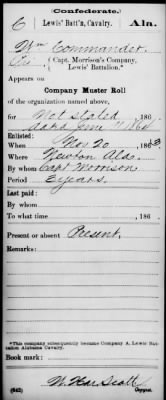 (Confederate.)
C Lewis' Batt'n, Cavalry. Ala.
Wm Commander
Pvt { Capt. Morrison's Company, Lewis' Battalion.*
Appears on
Company Muster Roll
of the organization named above,
for Not stated, 186
dated June 7, 1864
Enlisted:
When Nov 20, 1863
Where Newton Ala.
By whom Capt Morrison
Period 3 years.
Last paid:
By whom
To what time , 186
Present or absent Present.
Remarks:
*This company subsequently became Company A, Lewis' Battalion Alabama Cavalry.
Book mark:
(642) Copyist.